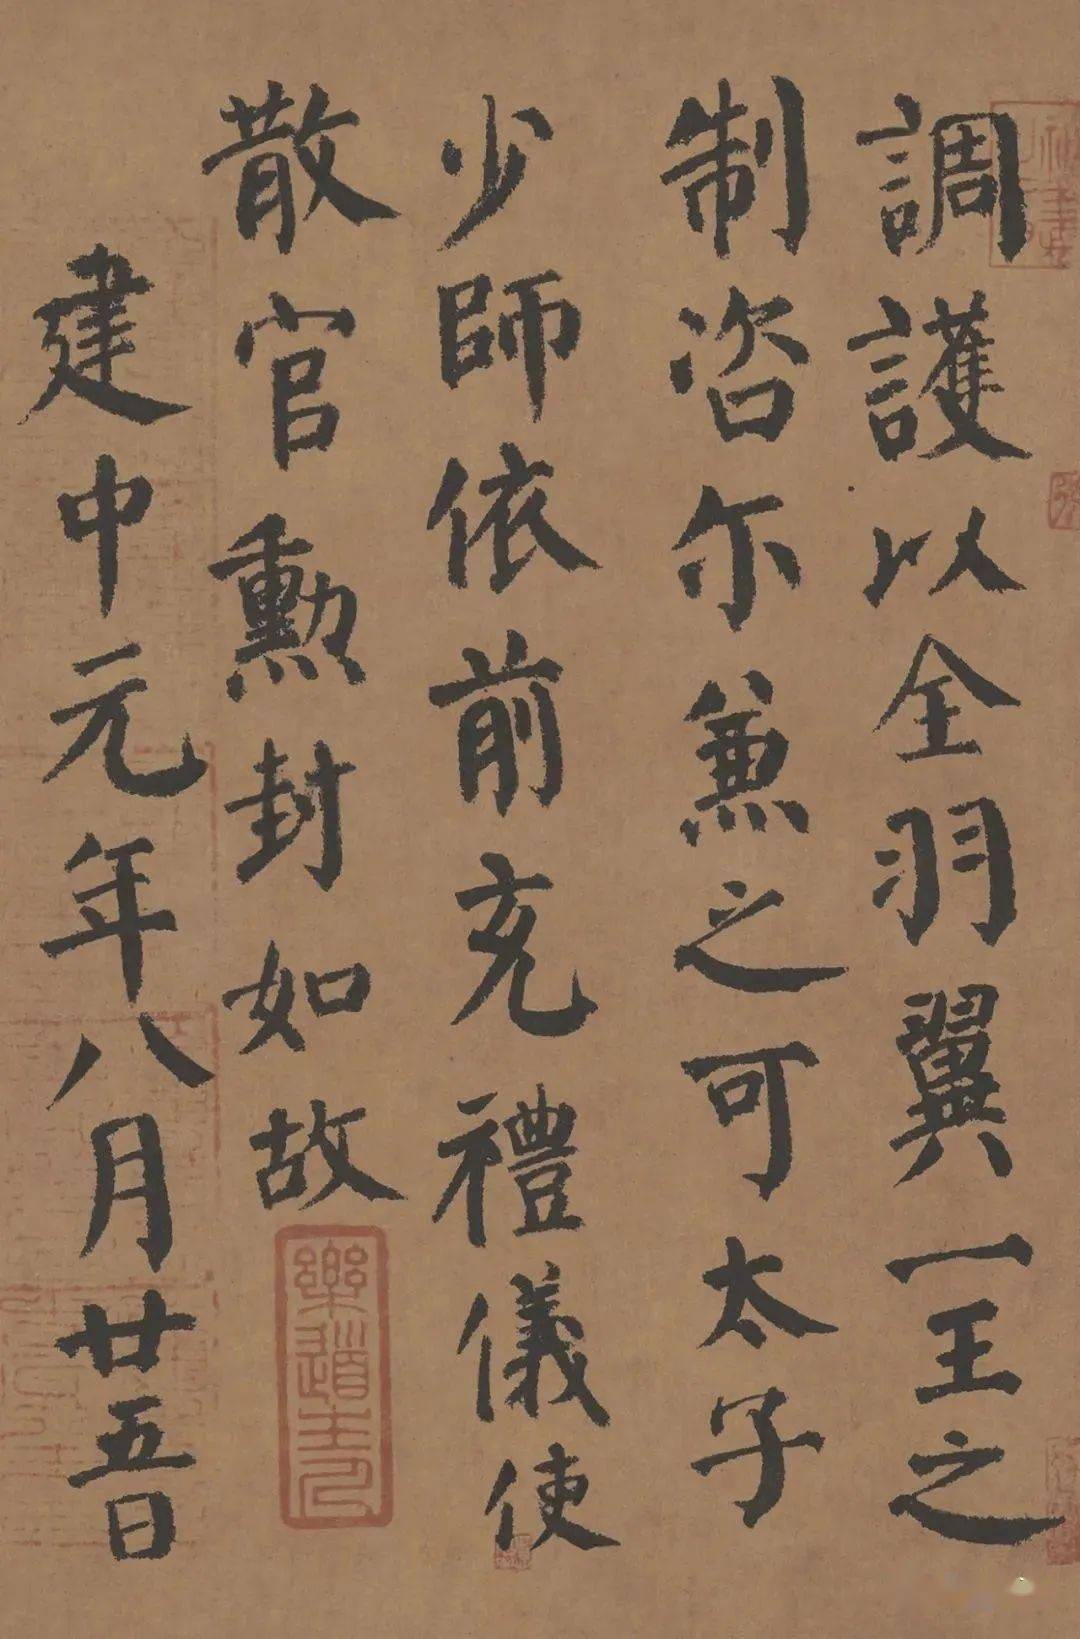 調護以全羽翼一王之
制咨尔兼之可太子
少師依前充禮儀使
散官勲封如故
建中元年八月廿五日
樂道主人